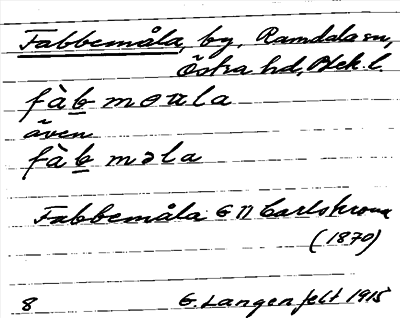 Fabbemåla, by, Ramdala sn,
Östra hd, Blek. l.
fàb moala
även
fàb məla
Fabbemåla GN Carlskrona
(1870)
8 G. Langenfelt 1915